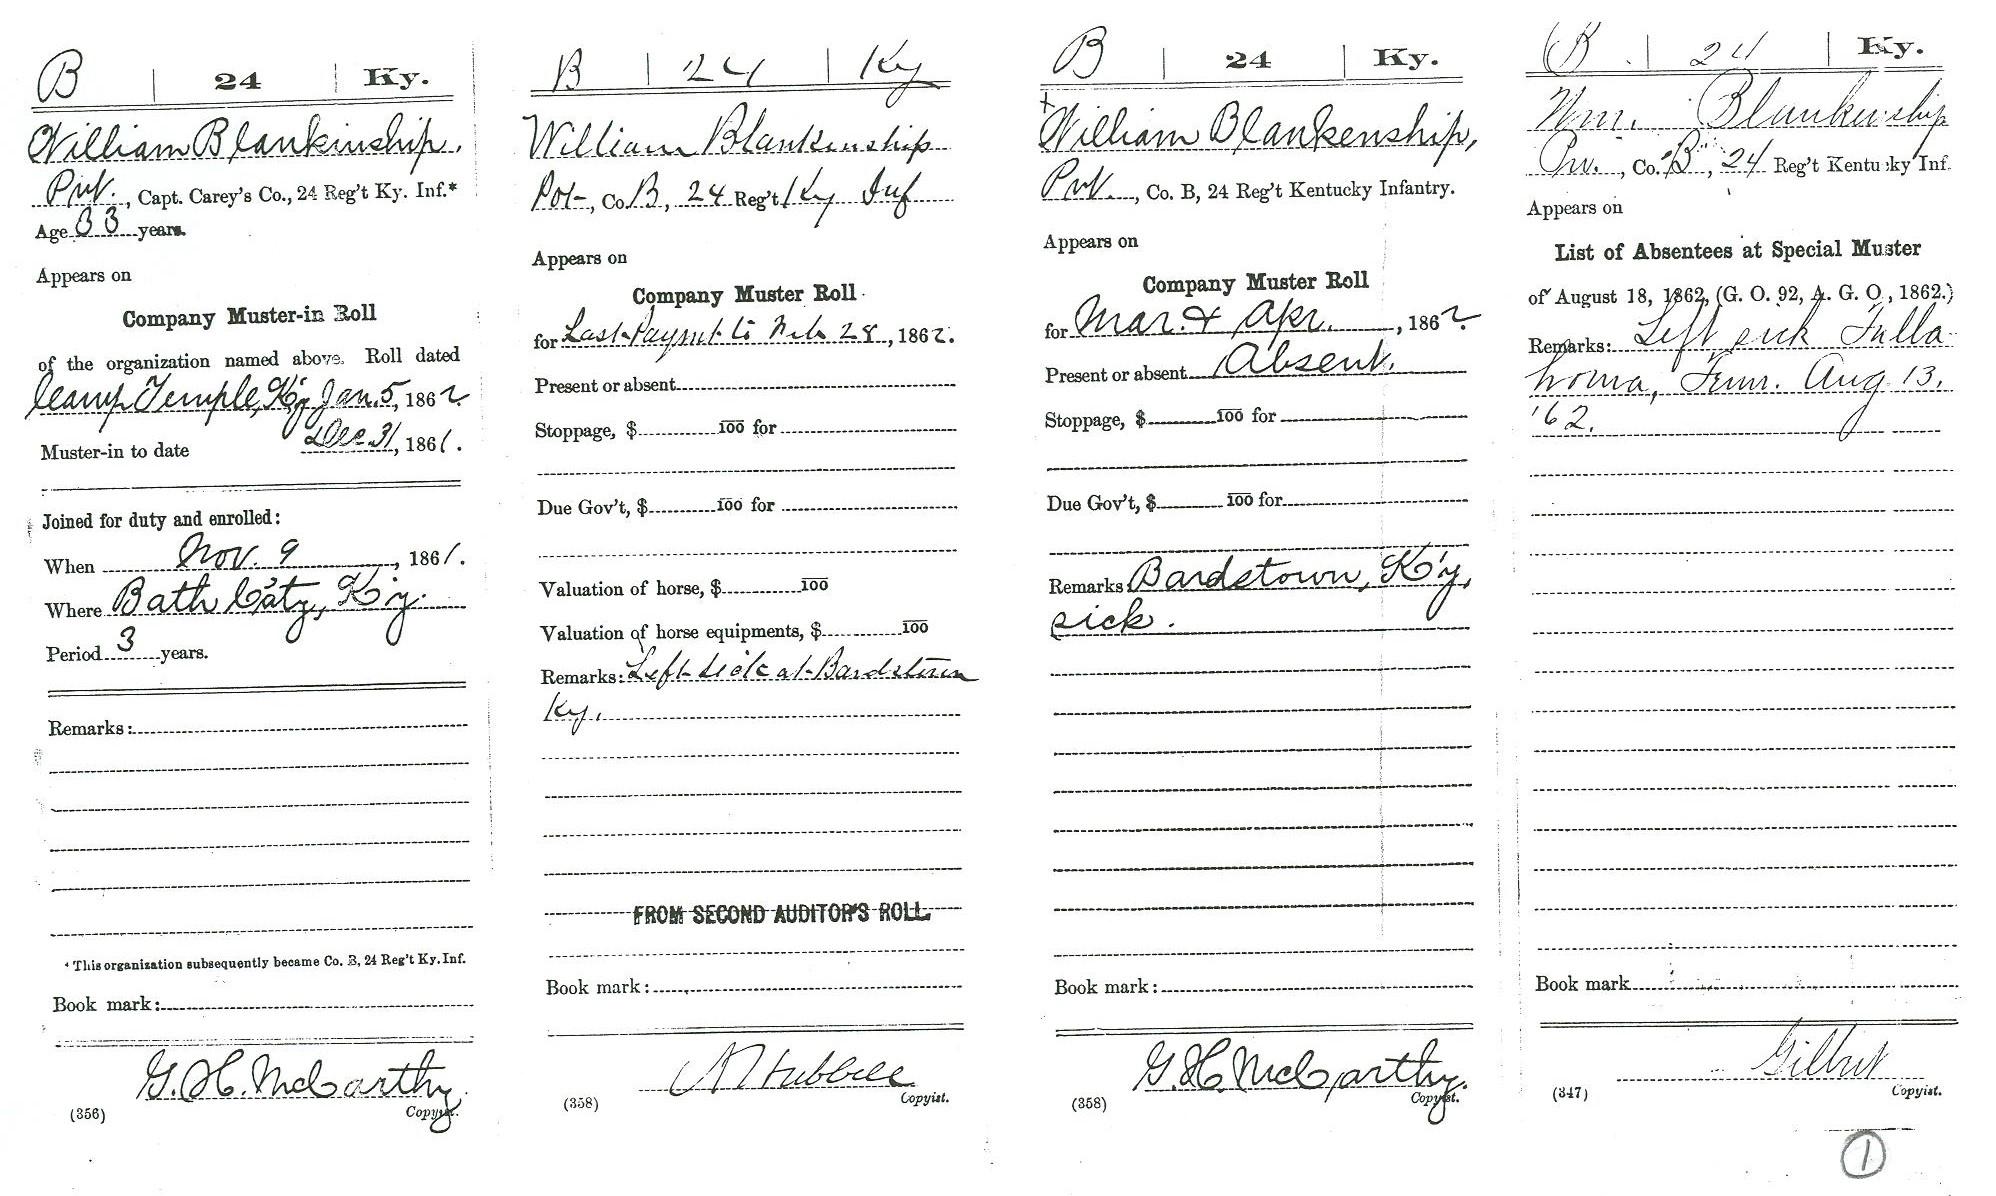 B | 24 | Ky.
William Blankinship.
Pvt., Capt. Carey's Co., 24 Reg't Ky. Inf.*
Age 33 years.
Appears on
Company Muster-in Roll
of the organization named above. Roll dated
Camp Temple, Ky Jan. 5, 1862.
Muster-in to date Dec. 31, 1861.
Joined for duty and enrolled:
When Nov. 9, 1861.
Where Bath C'ty, Ky.
Period 3 years.
Remarks:
* This organization subsequently became Co. B, 24 Reg't Ky. Inf.
Book mark:
G. H. McCarthy.
(356) Copyist.
B | 24 | Ky
William Blankinship
Pvt, Co. B, 24 Reg't Ky Inf
Appears on
Company Muster Roll
for Last Paymt to Feb 28, 1862.
Present or absent
Stoppage, $ 100 for
Due Gov't, $ 100 for
Valuation of horse, $ 100
Valuation of horse equipments, $ 100
Remarks: Left sick at Bardstown
Ky.
FROM SECOND AUDITOR'S ROLL.
Book mark:
Hubbell
(358) Copyist.
B | 24 | Ky.
William Blankenship,
Pvt., Co. B, 24 Reg't Kentucky Infantry.
Appears on
Company Muster Roll
for Mar. & Apr., 1862.
Present or absent Absent.
Stoppage, $ 100 for
Due Gov't, $ 100 for
Remarks Bardstown, K'y,
sick.
Book mark:
G. H. McCarthy.
(358) Copyist.
B. | 24 | Ky.
Wm. Blankenship
Pvt., Co. "B", 24 Reg't Kentucky Inf.
Appears on
List of Absentees at Special Muster
of August 18, 1862, (G. O. 92, A. G. O., 1862.)
Remarks: Left sick Tulla-
homa, Tenn. Aug 13,
'62.
Book mark
Gilbert
(347) Copyist.
1